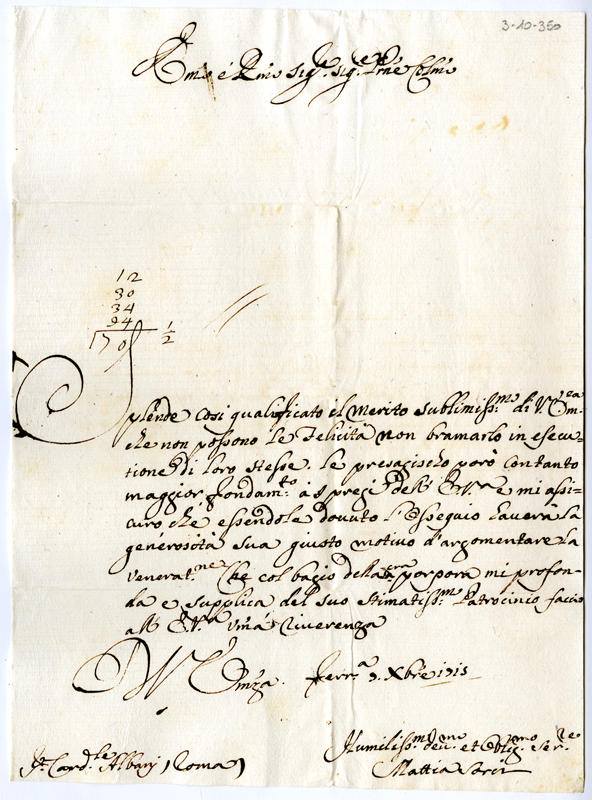 3-10-350
Em̃o é Rm̃o Sig.re Sig.re Prñe Colm̃o
12
30
34
94
170 1/2
Splende cosi qualificato il Merito sublimiss.mo di V. Em.za
che non possono le Felicità non bramarlo in esecu=
tione di loro stesse. Le presagischo però contanto
maggior fondam.to à preg di V.ra e mi assi=
curo che essendole dovuto l'ossequio haverà la
generosità sua giusto motivo d'argomentare la
venerat.ne Che col bacio della sacra porpora mi profon-
da e supplica del suo stimatiss.mo Patrocinio faccio
all' E.V.a um̃a riverenza
D V Em̃za. Ferr.a 9. Xbre 1715
Humiliss.mo dev.mo et oblig.mo Ser.re
S.r Card.le Albani (Roma)
Mattia